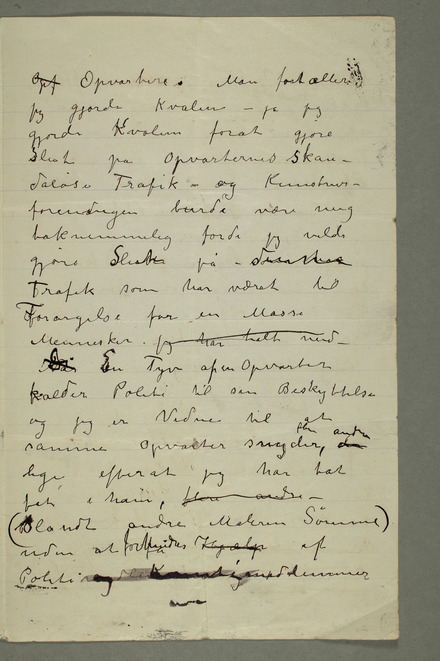 Opvartere. Man fortæller
jeg gjorde Kvalm – ja jeg
gjorde Kvalm forat gjøre
Slut på Opvarternes Skan-
daløse Trafik – og Kunstner-
foreningen burde være mig
taknemmelig fordi jeg vilde
gjøre Slut på –
Trafik som har været til
Forargelse for en Masse
Mennesker. jeg har helt
En Tyv af en Opvarter
kalder Politi til sin Beskyttelse
og jeg er Vidne til at
samme Opvarter snyder, den andre
lige efterat jeg har tat
fat i ham,
(Blandt andre Maleren Sømme)
uden at få Hjælp af
Politi og